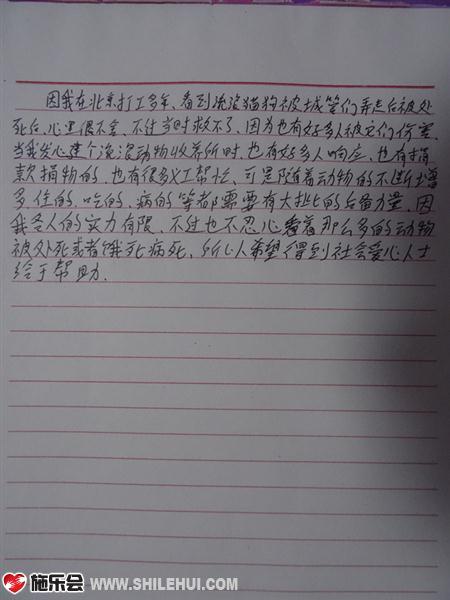 因我在北京打工多年、看到流浪猫狗被城管们弄走后被处
死后、心里很不舍、不过当时救不了、因为也有好多人被它们伤害、
当我发心建个流浪动物收养所时、也有好多人响应、也有捐
款捐物的、也有很多义工帮忙、可是随着动物的不断增
多住的、吃的、病的等都需要有大批的后备力量、因
我个人的实力有限、不过也不忍心看着那么多的动物
被处死或者饿死病死、所以希望得到社会爱心人士
给于帮助.
施乐会 WWW.SHILEHUI.COM